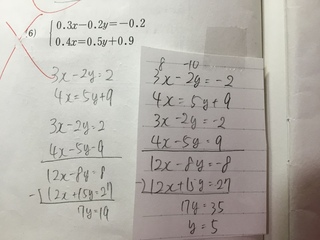 (6) { 0.3x−0.2y=−0.2
0.4x=0.5y+0.9
3x-2y=2
4x=5y+9
3x-2y=2
4x-5y=9
12x-8y=8
-) 12x+15y=27
7y=19
8 -10
3x-2y=-2
4x=5y+9
3x-2y=-2
4x-5y=9
12x-8y=-8
-) 12x+15y=27
17y=35
y=5